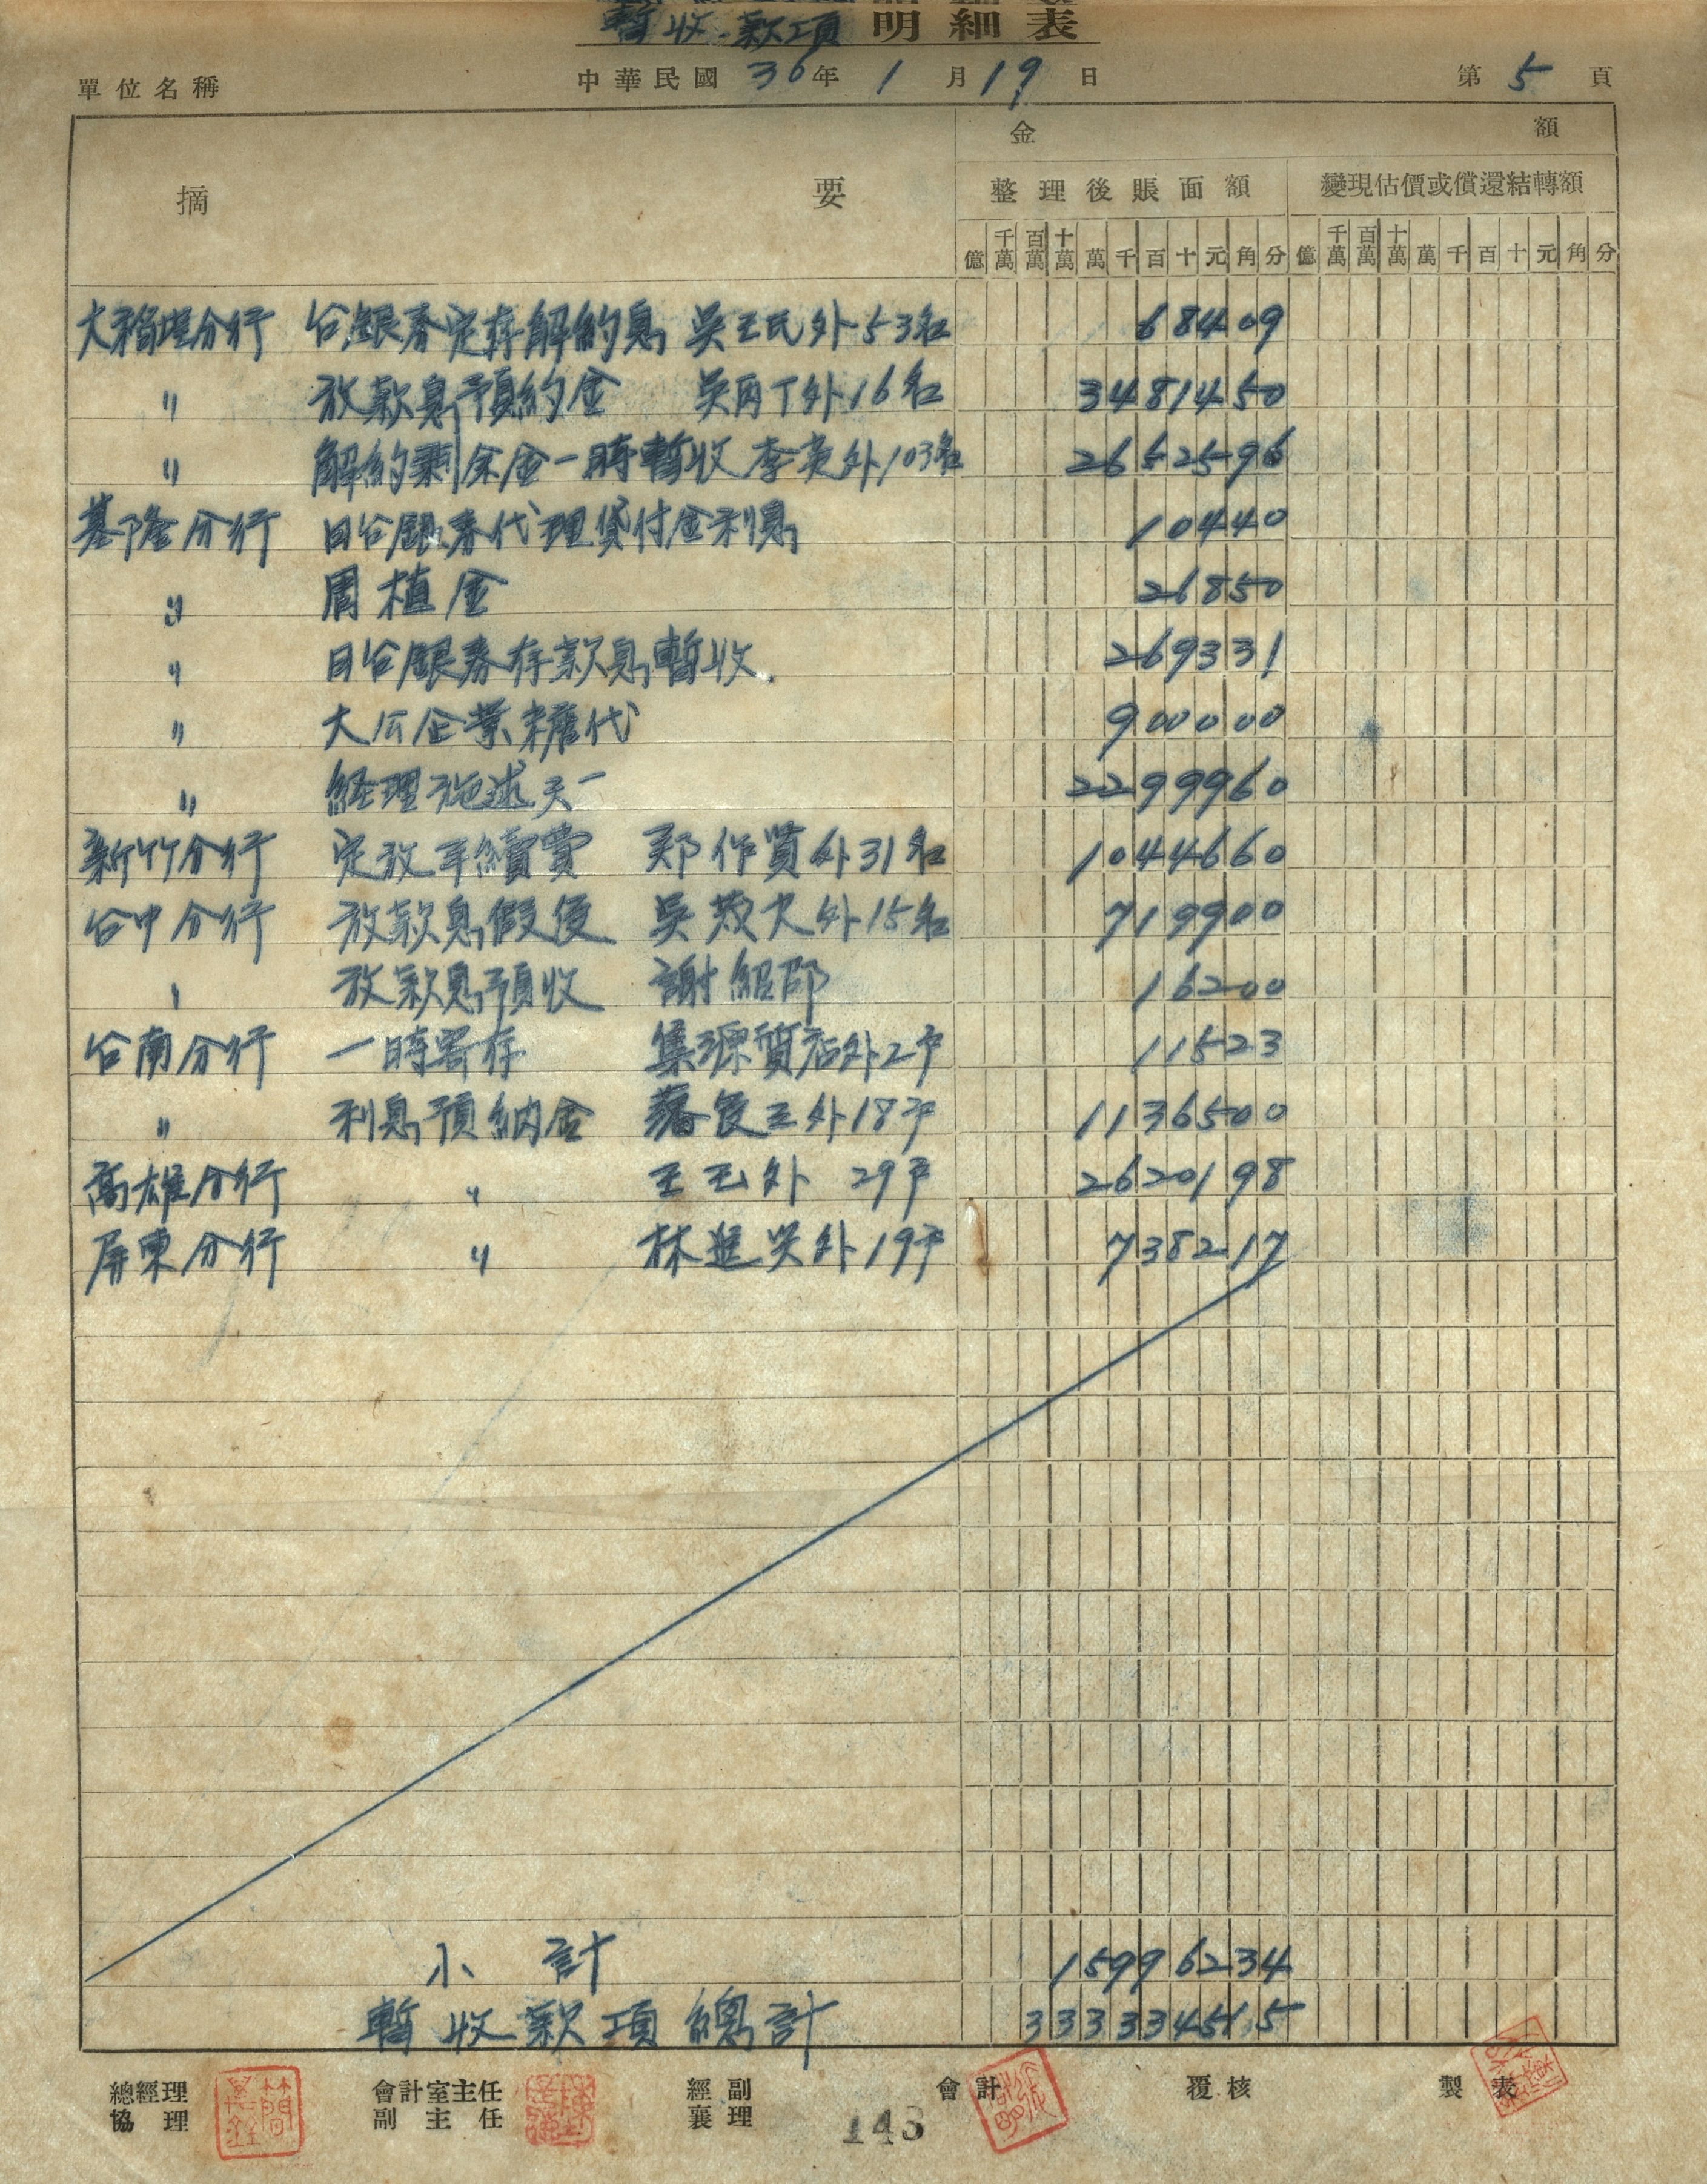 暫收款項 明細表
單位名稱 中華民國 36年 1月19日 第 5 頁
摘 要 金 額
整理後賬面額 變現估價或償還結轉額
億 千萬 百萬 十萬 萬 千 百 十 元 角 分 億 千萬 百萬 十萬 萬 千 百 十 元 角 分
大稻埕分行 台銀券定存解約息 吳王氏外53名 68409
〃 放款息預約金 吳丙丁外16名 3481450
〃 解約剩余金一時暫收 李英外103名 2652596
基隆分行 日台銀券代理貸付金利息 10440
〃 周植金 26850
〃 日台銀券存款息暫收. 269331
〃 大公企業糖代 900000
〃 経理 施述天 2299960
新竹分行 定放手續費 鄭作賢外31名 1044660
台中分行 放款息假受 外15名 719900
〃 放款息預收 謝紹 16200
台南分行 一時寄存 集源質店外2戶 11523
〃 利息預納金 外18戶 1136500
高雄分行 〃 王玉外 29戶 2620198
屏東分行 〃 林進 外19戶 738217
小計 15996234
暫收款項總計 333334515
總經理 會計室主任 經副 會計 覆核 製表
協理 副主任 襄理 143